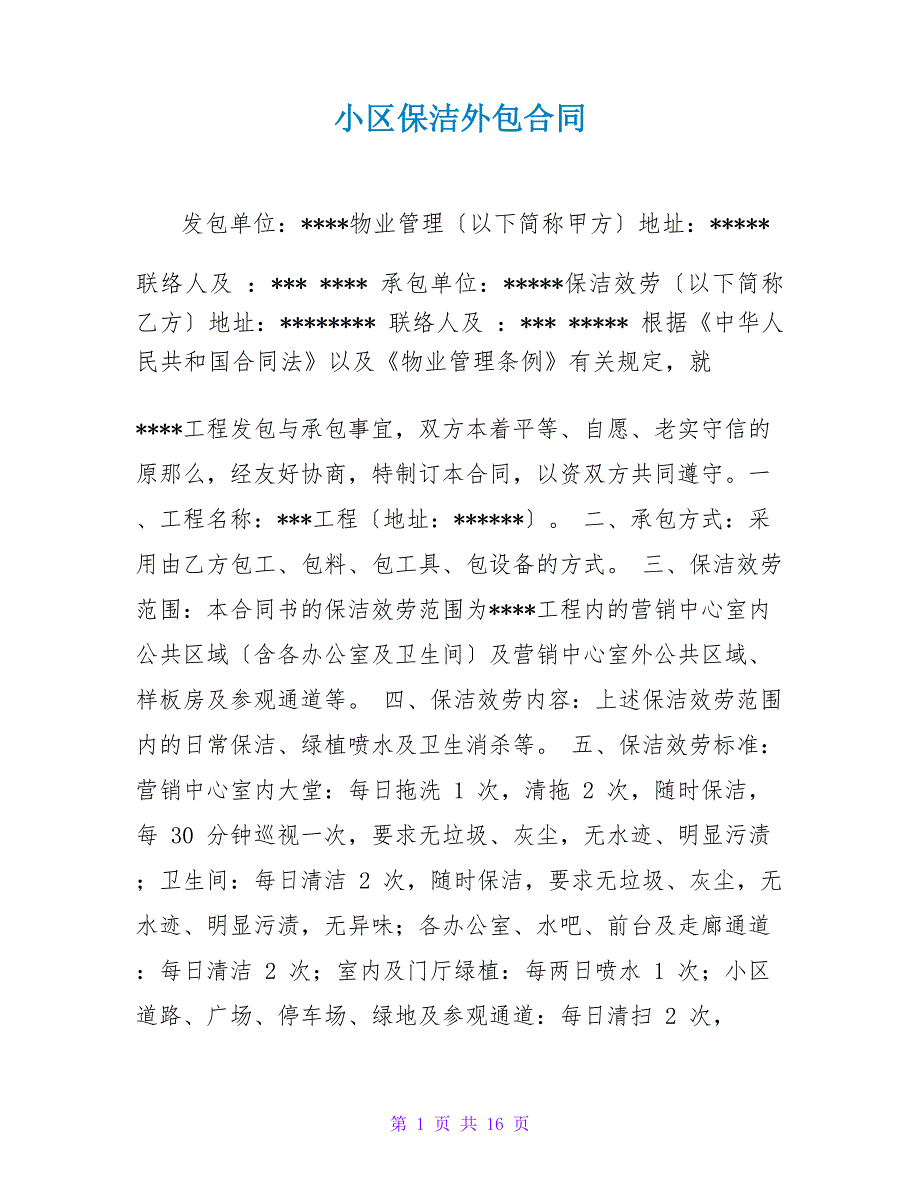 小区保洁外包合同
发包单位：****物业管理〔以下简称甲方〕地址：*****
联络人及 ：*** **** 承包单位：*****保洁效劳〔以下简称
乙方〕地址：******** 联络人及 ：*** ***** 根据《中华人
民共和国合同法》以及《物业管理条例》有关规定，就
****工程发包与承包事宜，双方本着平等、自愿、老实守信的
原那么，经友好协商，特制订本合同，以资双方共同遵守。一
、工程名称：***工程〔地址：******〕。 二、承包方式：采
用由乙方包工、包料、包工具、包设备的方式。 三、保洁效劳
范围：本合同书的保洁效劳范围为****工程内的营销中心室内
公共区域〔含各办公室及卫生间〕及营销中心室外公共区域、
样板房及参观通道等。 四、保洁效劳内容：上述保洁效劳范围
内的日常保洁、绿植喷水及卫生消杀等。 五、保洁效劳标准：
营销中心室内大堂：每日拖洗 1 次，清拖 2 次，随时保洁，
每 30 分钟巡视一次，要求无垃圾、灰尘，无水迹、明显污渍
；卫生间：每日清洁 2 次，随时保洁，要求无垃圾、灰尘，无
水迹、明显污渍，无异味；各办公室、水吧、前台及走廊通道
：每日清洁 2 次；室内及门厅绿植：每两日喷水 1 次；小区
道路、广场、停车场、绿地及参观通道：每日清扫 2 次，
第 1 页 共 16 页